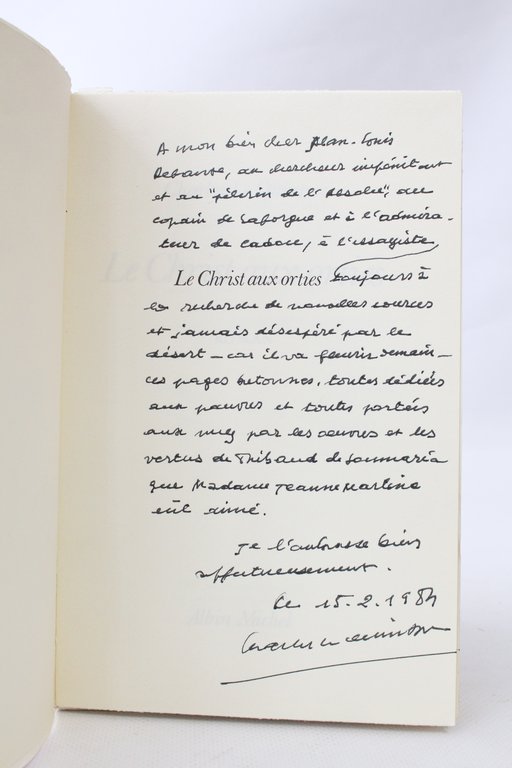 A mon bien cher Jean-Louis
Debauve, au chercheur impénitent
et au "pèlerin de l'Absolu", au
copain de Laforgue et à l'admira-
teur de Cadou, à l'essayiste
Le Christ aux orties toujours à
la recherche de nouvelles sources
et jamais désespéré par le
désert - car il va fleurir demain -
ces pages bretonnes, toutes dédiées
aux pauvres et toutes portées
aux par les oeuvres et les
vertus de Thibaud de
que Madame Jeanne Martine
eût aimé.
Je l'embrasse bien
affectueusement.
Ce 15.2.1984
Charles Le Quintrec
Albin Michel